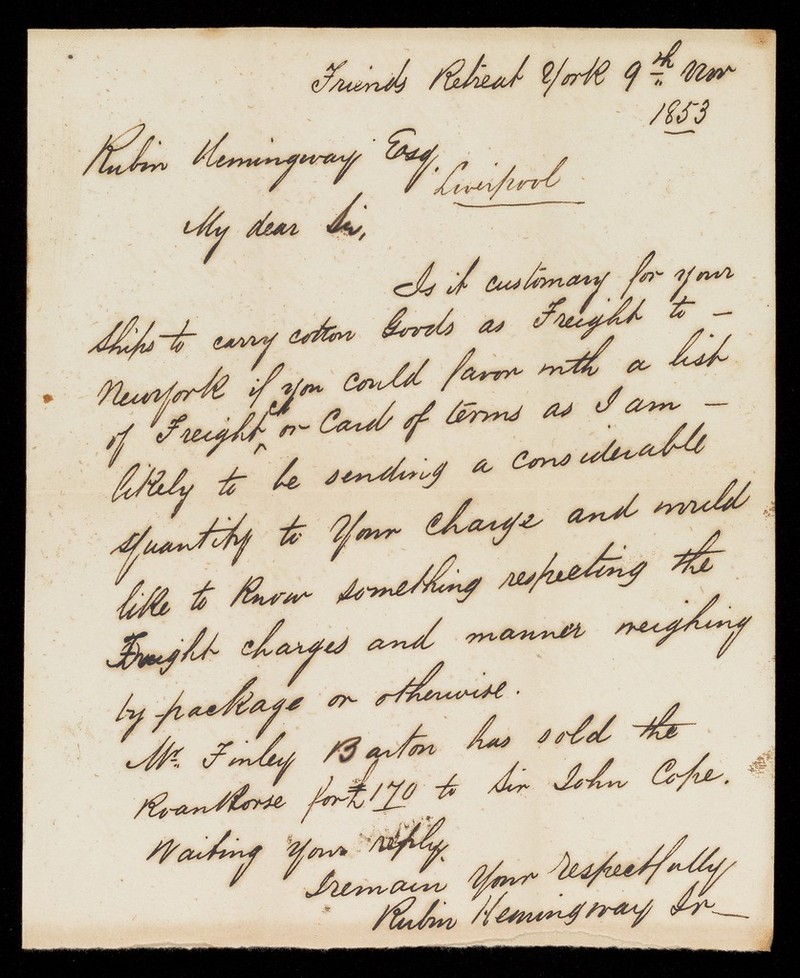 Friends Retreat York 9th Nov
1853
Rubin Hemingway Esq.
Liverpool
My dear Sir,
Is it customary for your
Ships to carry cotton Goods as Freight to –
Newyork if you could favor with a list
of Freight ch or Card of terms as I am –
likely to be sending a considerable
quantity to Your Charge and would
like to know something respecting the
Freight charges and manner weighing
by package or otherwise.
Mr. Finley Barton has sold the
Roan Horse for £170 to Sir John Cope.
Waiting your reply.
I remain Your respectfully
Rubin Hemingway Jr –